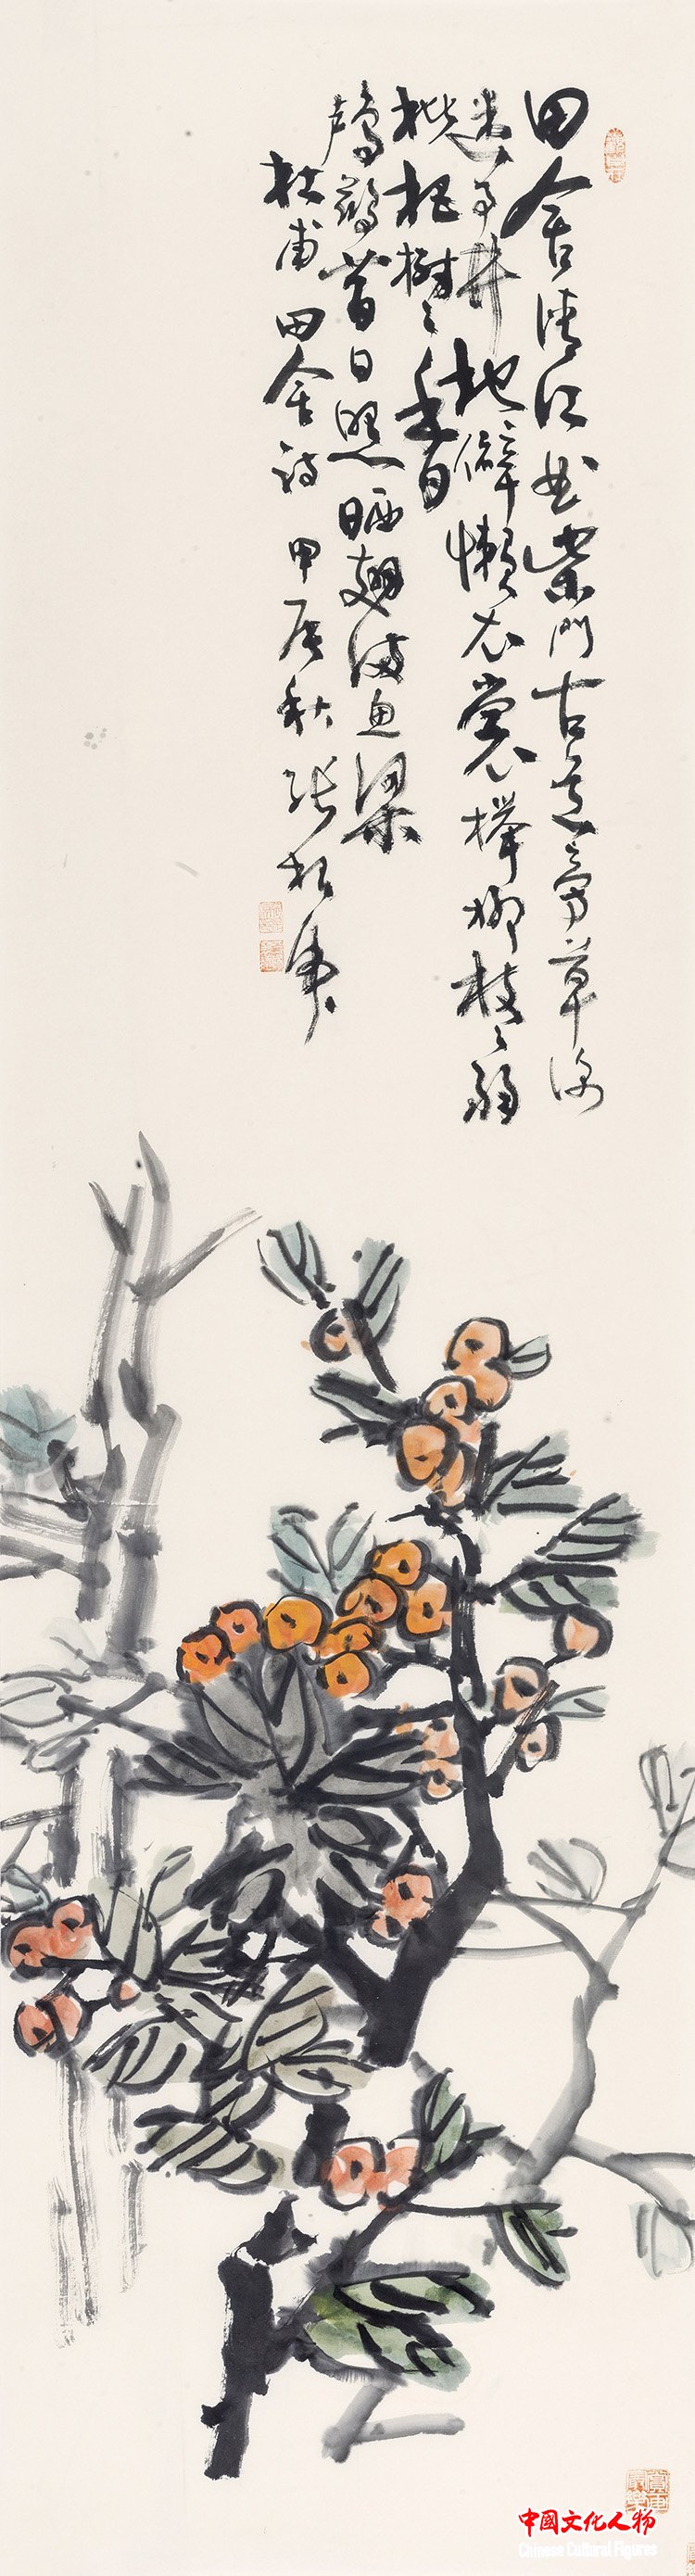 田舍清江曲柴門古道旁草深
迷市井地僻懶衣裳櫸柳枝〻弱
枇杷樹〻香
鸕鷀昔日照晒翅满魚梁
杜甫田舍詩 甲辰秋 张
中國文化人物
Chinese Cultural Figures